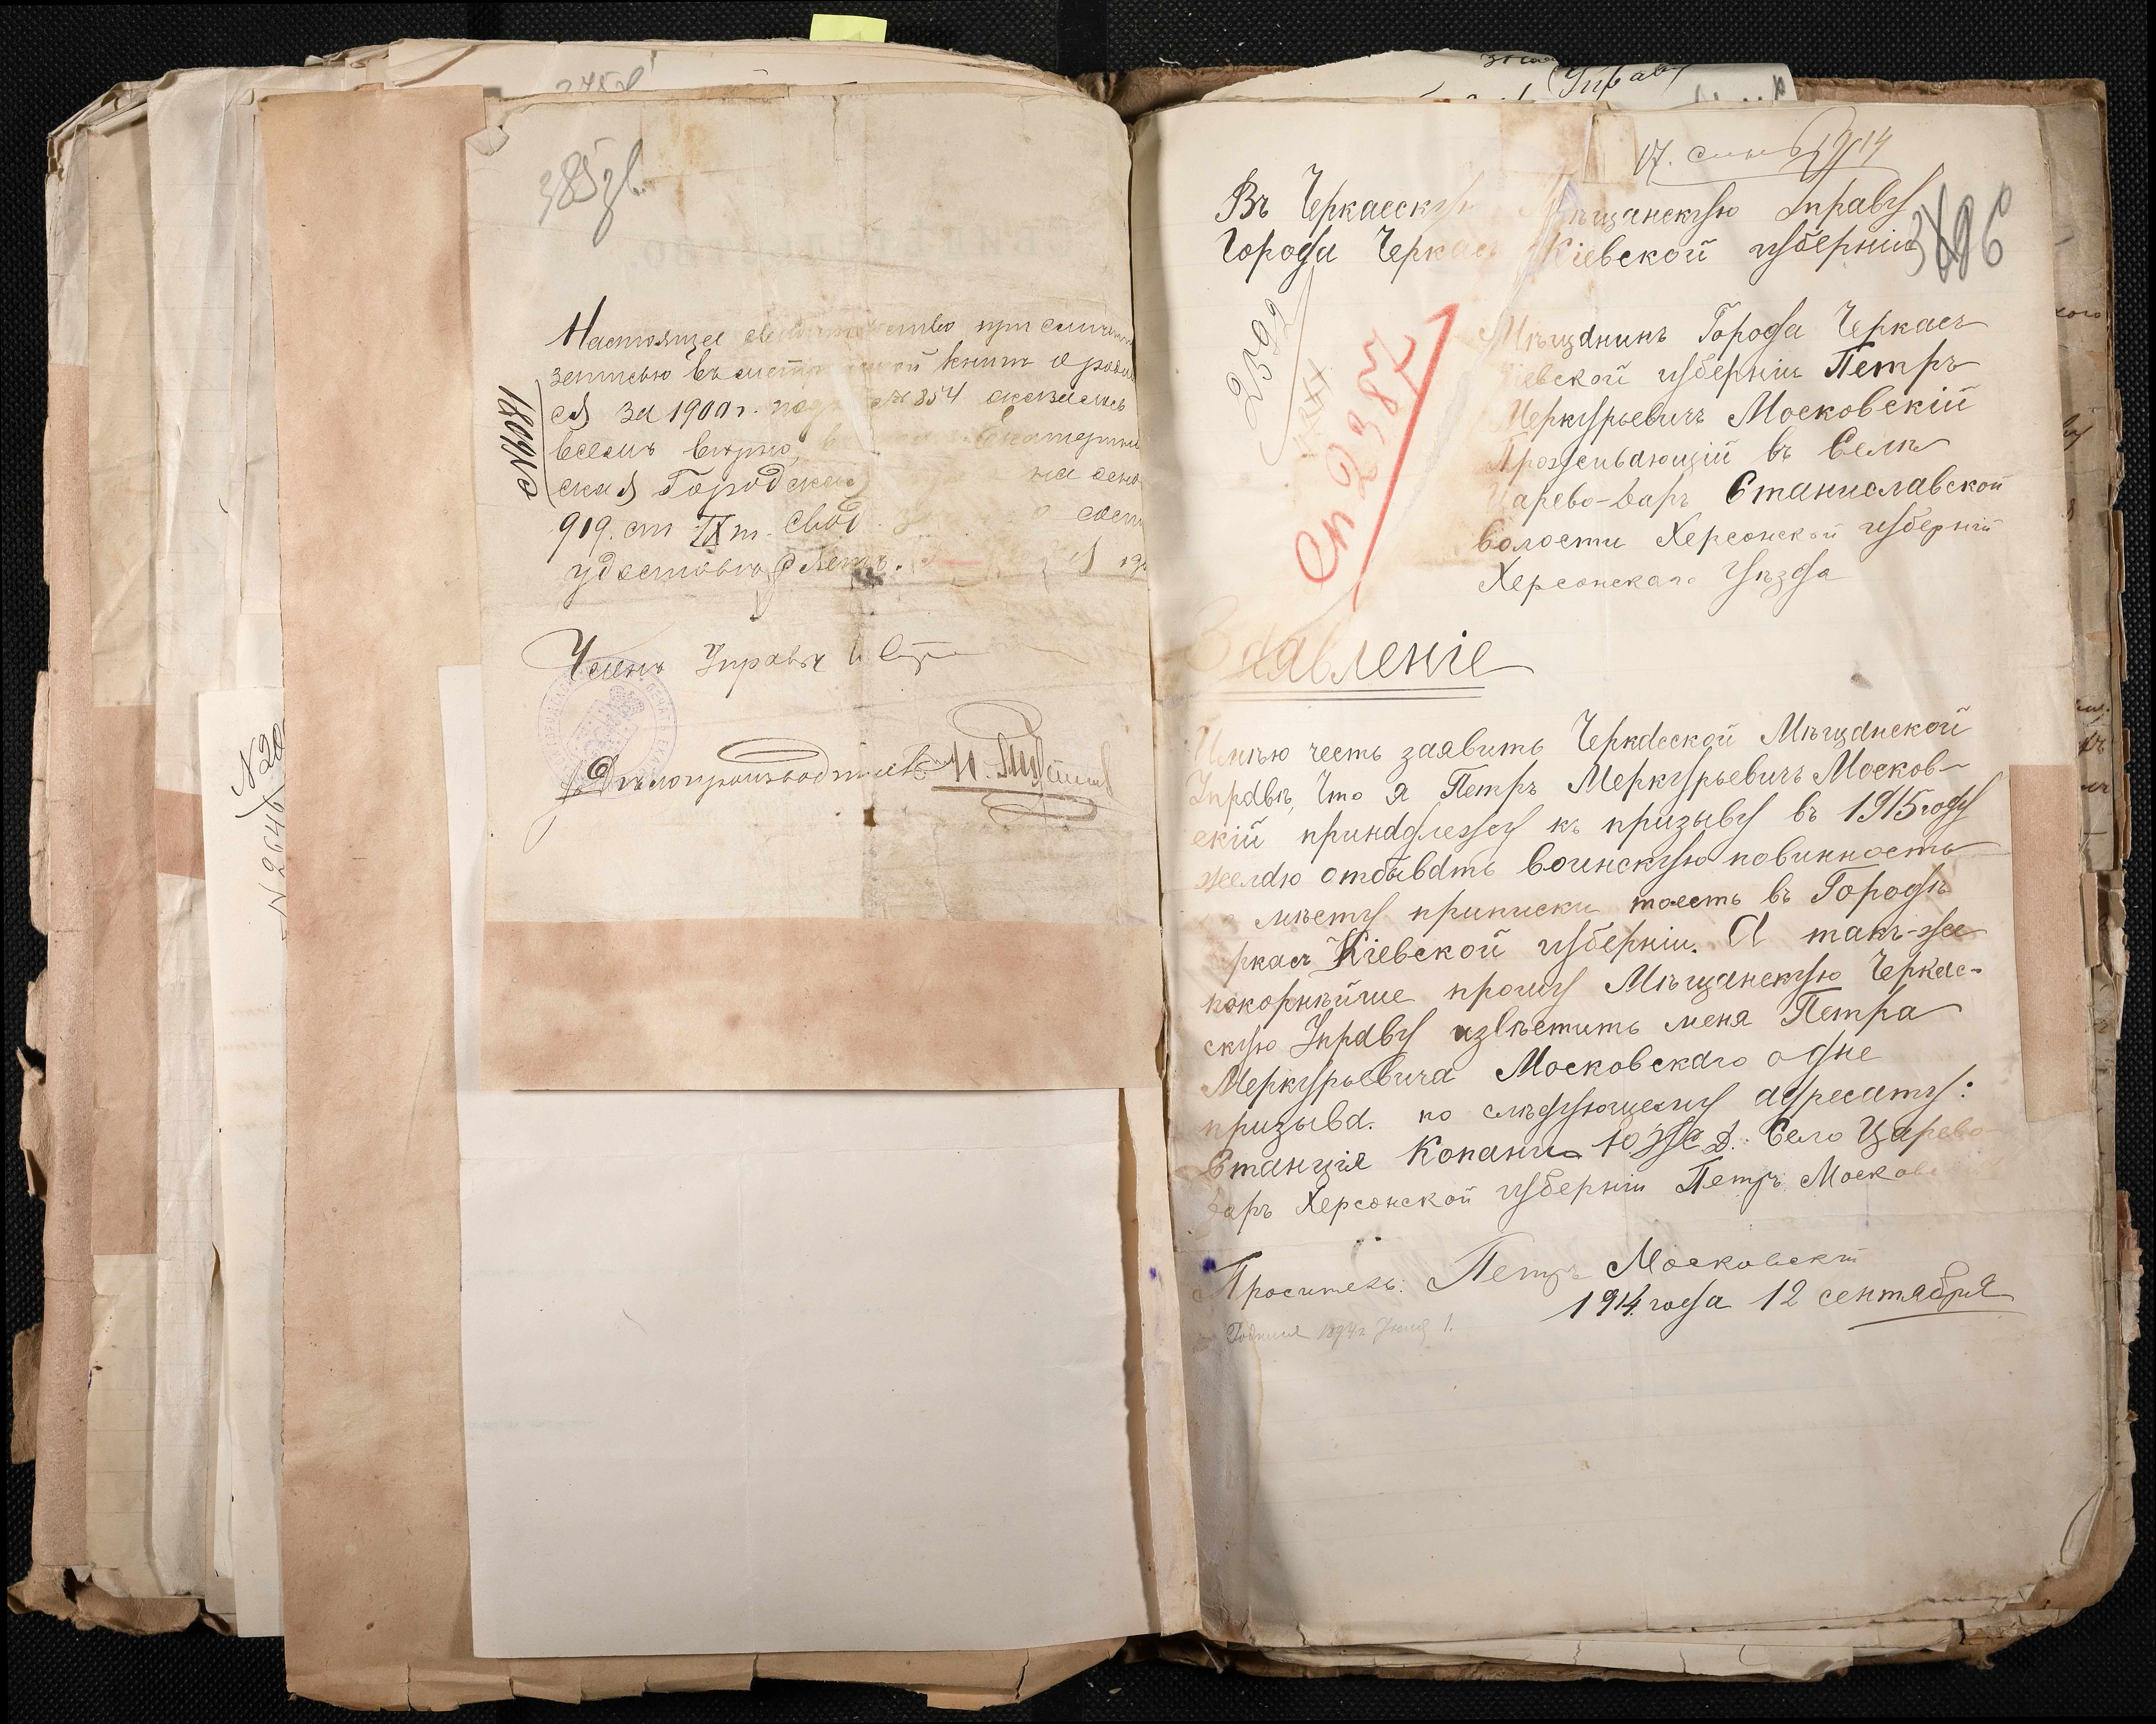 385 зв.
Настоящее свидетельство при сличении
записью въ метрической книгѣ о родив
ся за 1900 г. подъ № 854 оказалось
всемъ вѣрно,
ская Городская на осно
919. ст IX т. Свод.
удостовѣряетъ.
№ 1081
Членъ Управы
Дѣлопроизводитель
№ 20
17. 1914
Въ Черкасскую Мѣщанскую Управу
Города Черкасъ Кіевской губерніи
386
2592
Сп 2387
Мѣщанинъ Города Черкасъ
Кіевской губерніи Петръ
Меркурьевичъ Московскій
Проживающій въ Селѣ
Царево-Даръ Станиславской
волости Херсонской губерніи
Херсонскаго Уѣзда
Заявленіе
Имѣю честь заявить Черкасской Мѣщанской
Управѣ, что я Петръ Меркурьевичъ Москов-
скій принадлежу къ призыву въ 1915 году
желаю отбывать воинскую повинность
мѣсту приписки тоесть въ Городѣ
Черкасъ Кіевской губерніи. А такъ-же
покорнѣйше прошу Мѣщанскую Черкас-
скую Управу извѣстить меня Петра
Меркурьевича Московскаго одне
призыва. по слѣдующему адресату:
Станція Копани Ю Ж Д. Село Царево-
Даръ Херсонской губерніи Петръ Москов
Проситель: Петръ Московскій
1914 года 12 сентября
Родился 1894 г. 1.